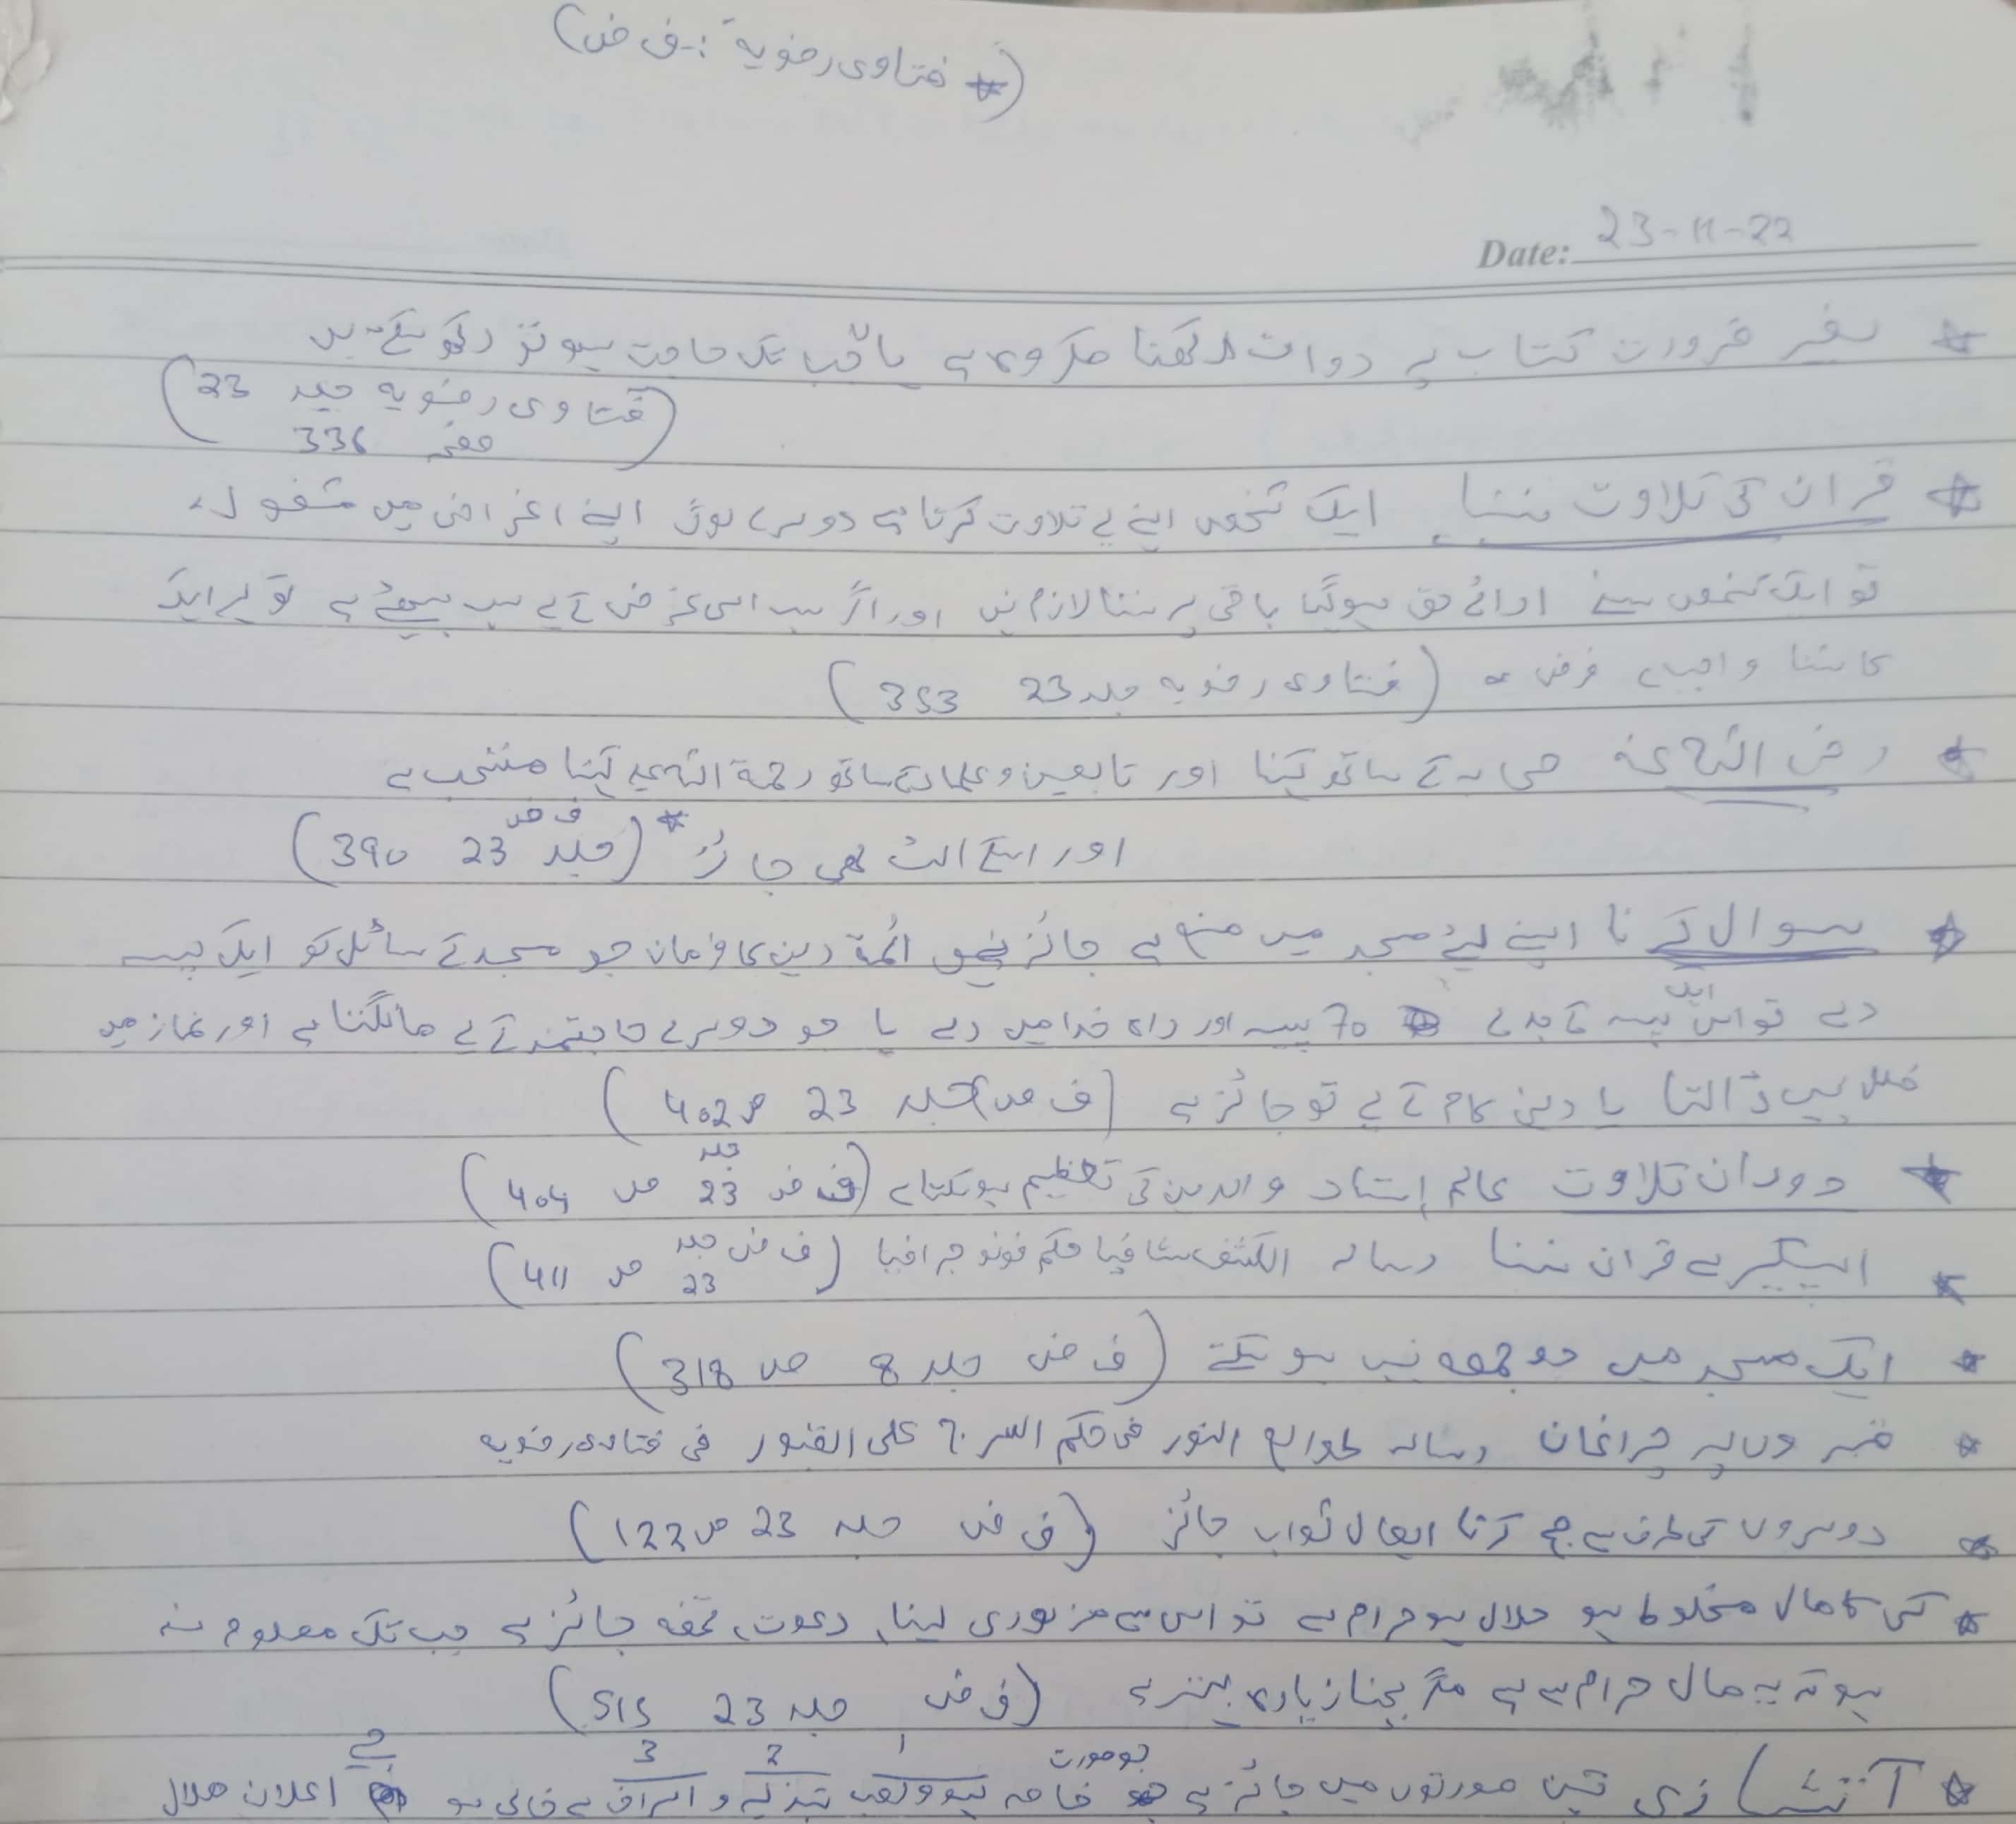 (* فتاوی رضویہ :- ف ض)
Date: 23-11-22
بغیر ضرورت کتاب پہ دوات رکھنا مکروہ ہے ہاں جب تک حاجت ہو تو رکھ سکتے ہیں
(فتاوی رضویہ جلد 23
صفحہ 336)
* قران کی تلاوت سننا ایک شخص اپنے لیے تلاوت کرتا ہے دوسرے لوگ اپنے اغراض میں مشغول
تو ایک شخص سے ادائے حق ہوگیا باقی پر سننا لازم نہیں اور اگر سب اسی غرض کے لیے بیٹھے ہے تو ہر ایک
کا سننا واجب فرض ہے (فتاوی رضویہ جلد 23 353)
* رضی اللہ عنہ صحابہ کے ساتھ کہنا اور تابعین و علماء کے ساتھ رحمۃ اللہ علیہ کہنا مستحب ہے
اور اسکے الٹ بھی جائز * (ف ض جلد 23 390)
* سوال کرنا اپنے لیئے مسجد میں منع ہے جائز نہیں ائمۃ دین کا فرمان جو مسجد کے سائل کو ایک پیسہ
دے تو اس ایک پیسہ کے بدلے 70 پیسہ اور راہ خدا میں دے یا جو دوسرے حاجتمند کے لیے مانگتا ہے اور نماز میں
خلل نہیں ڈالتا یا دینی کام کے لیے تو جائز ہے (ف ض جلد 23 ص 402)
* دوران تلاوت عالم استاد والدین کی تعظیم ہو سکتا ہے (ف ض جلد 23 ص 404)
* اسپیکر سے قران سننا رسالہ الکشف شافیا حکم فونو جرافیا (ف ض جلد 23 ص 411)
* ایک مسجد میں دو جمعہ نہیں ہو سکتے (ف ض جلد 8 ص 318)
* قبروں پہ چراغاں رسالہ طوالع النور فی حکم السرج علی القبور فی فتاوی رضویہ
* دوسروں کی طرف سے حج کرنا ایصال ثواب جائز (ف ض جلد 23 ص 122)
* کسی کا مال مخلوط ہو حلال ہو حرام سے تو اس سے مزدوری لینا، دعوت، تحفہ جائز ہے جب تک معلوم نہ
ہو کہ یہ مال حرام سے ہے مگر بچنا زیادہ بہتر ہے (ف ض جلد 23 515)
* آتشبازی تین صورتوں میں جائز ہے جو صورت خاصہ لہو و لعب 1 تبذیر 2 و اسراف 3 سے خالی ہو جیسے اعلان ہلال